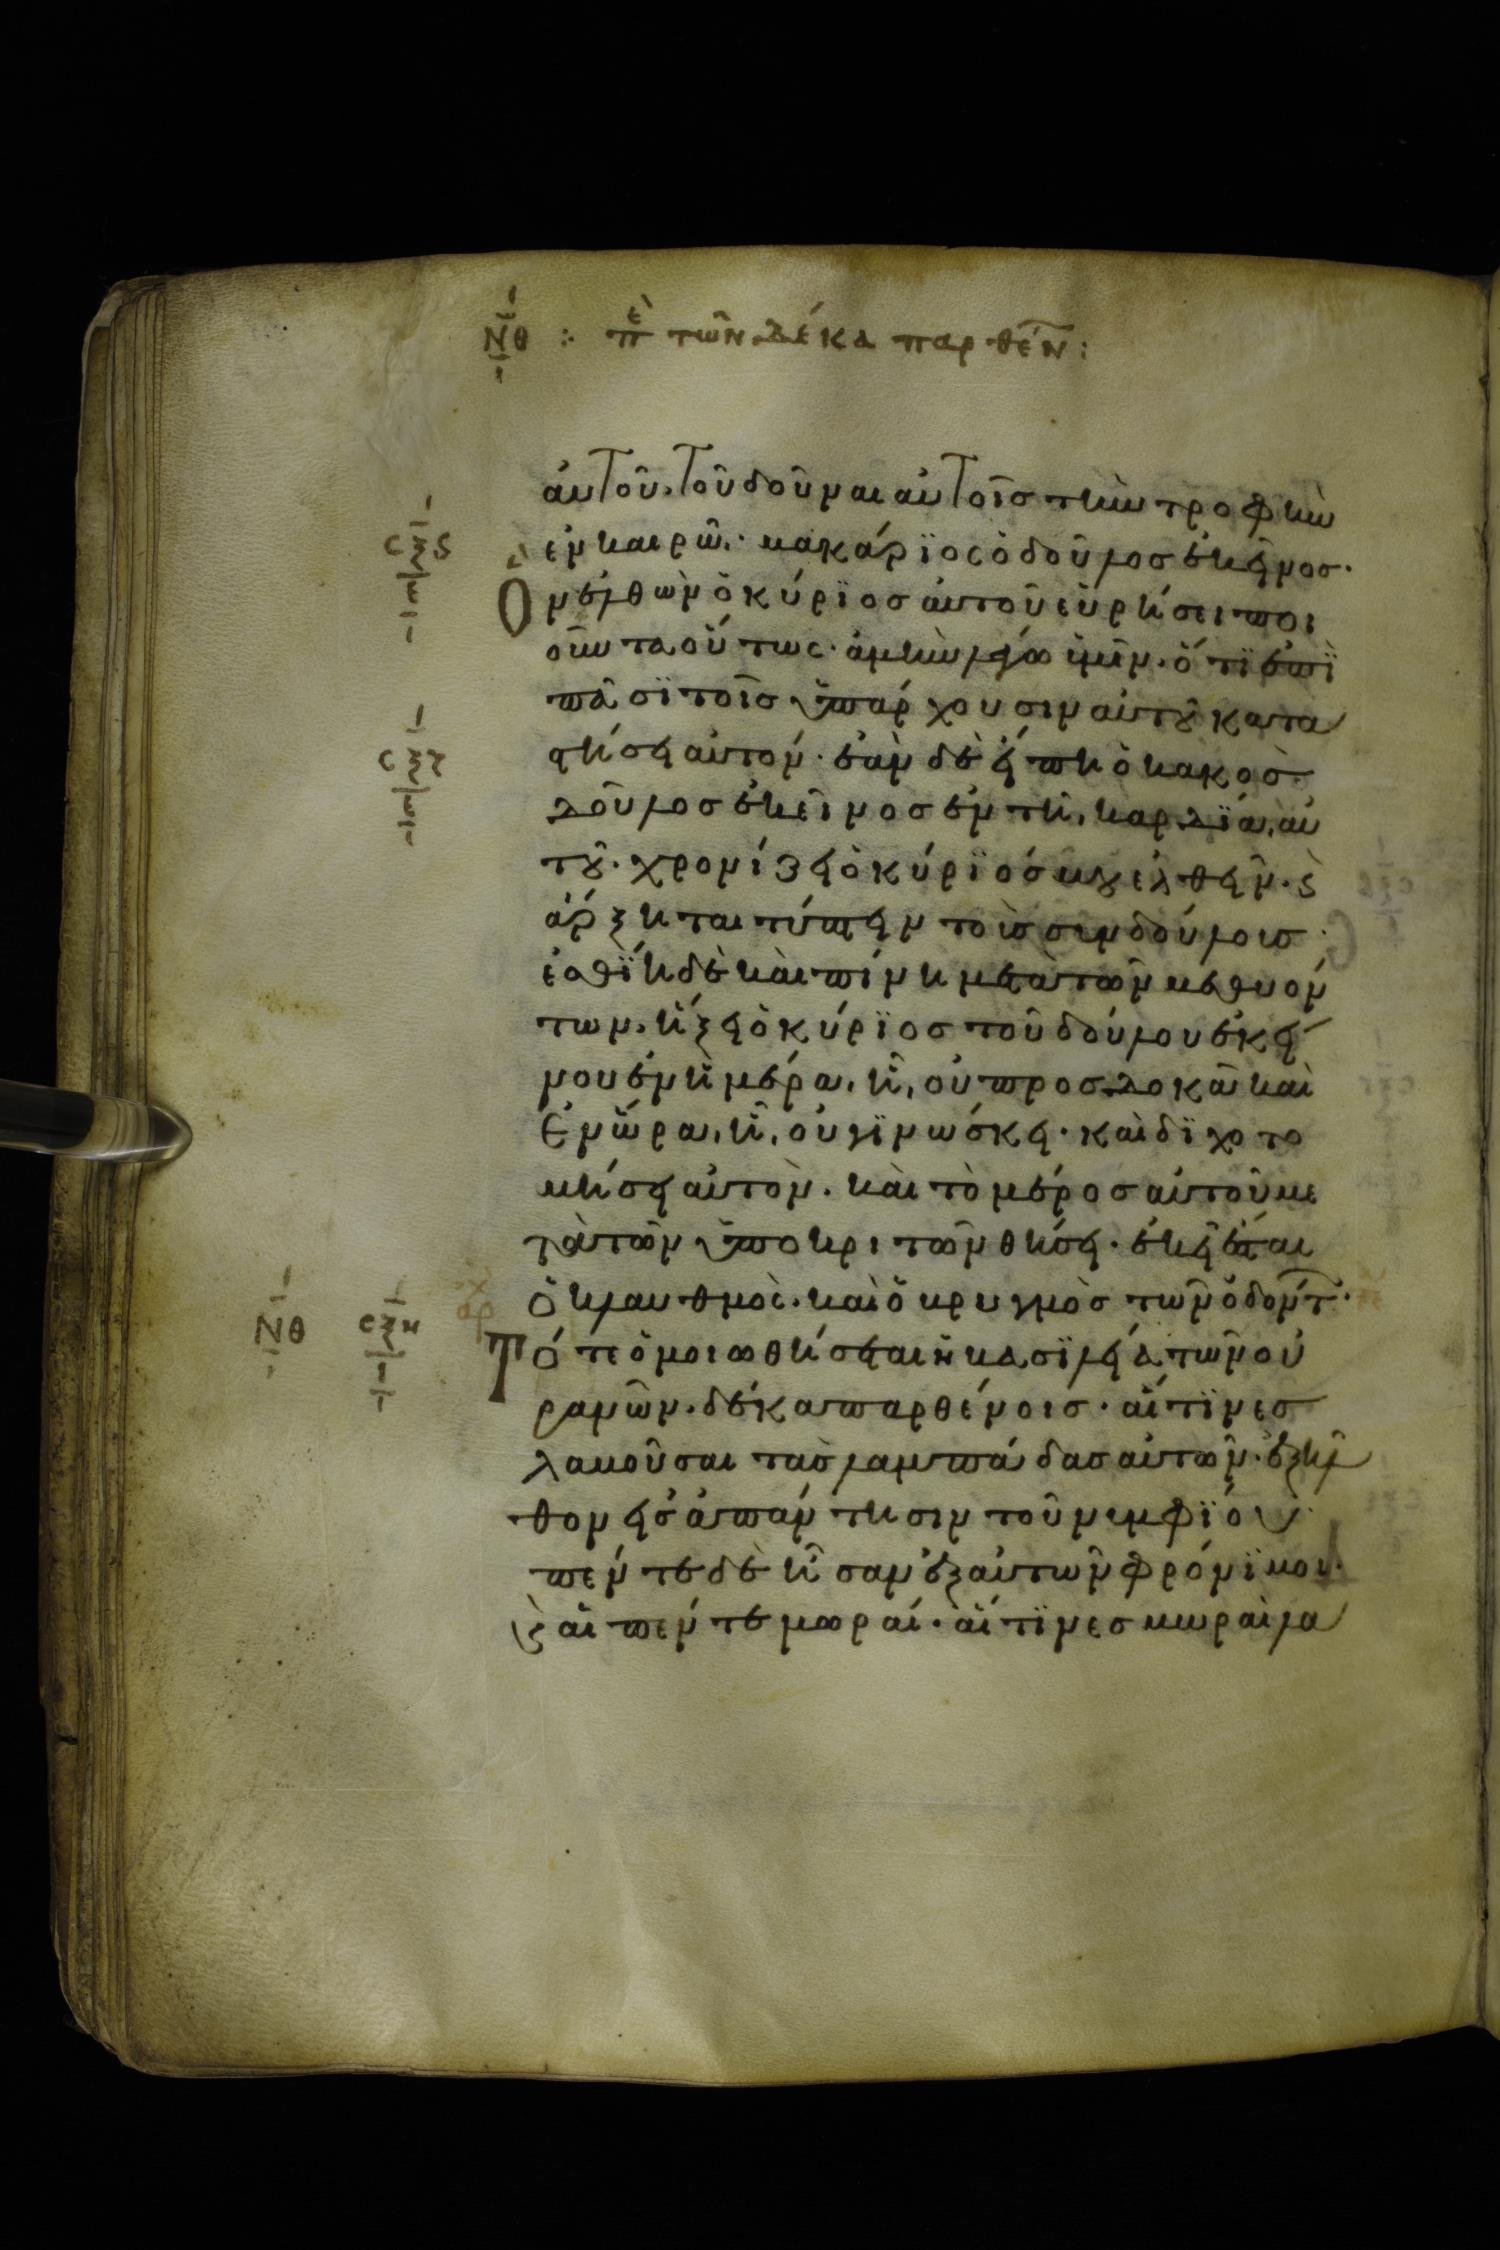 ΝΘ : πὲ τῶν δέκα παρθέν:
αὐτοῦ. τοῦ δοῦναι αὐτοῖσ τὴν τροφὴν
ἐν καιρῶ. μακάριος ὁ δοῦλοσ ἐκεῖνοσ.
cξϛ
ὃ
ν ἐλθὼν ὁ κύριοσ αὐτοῦ εὑρήσει ποι
οῦντα οὕτως. ἀμὴν λέγω ὑμῖν. ὅτι ἐπῒ
πᾶσϊ τοῖσ ὑπάρχουσιν αὐτοῦ κατα
cξζ
στήσει αὐτόν. ἐὰν δὲ εἴπη ὁ κακὸσ
δοῦλοσ ἐκεῖνοσ ἐν τῆ καρδία αὐ
τοῦ. χρονίζει ὁ κύριόσ μου ἐλθεῖν. ϛ
ἄρξηται τύπτειν τοὺσ συνδούλουσ.
ἐσθΐη δὲ καὶ πίνη μετὰ τῶν μεθυόν
των. ἥξει ὁ κύριοσ τοῦ δούλου ἐκεί
νου ἐν ἡμέρα ἧ οὐ προσδοκᾶ καὶ
ἐν ὥρα ἧ οὐ γινώσκει. καὶ διχοτο
μήσει αὐτὸν. καὶ τὸ μέροσ αὐτοῦ με
τὰ τῶν ὑποκριτῶν θήσει. ἐκεῖ ἔσται
ὁ κλαυθμὸς. καὶ ὁ βρυγμὸσ τῶν ὀδόντ.
ΝΘ cξη
αρχ
Τότε ὁμοιωθήσεται ἡ βασιλεία τῶν οὐ
ρανῶν. δέκα παρθένοισ. αἵτινεσ
λαβοῦσαι τὰσ λαμπάδασ αὐτῶν. ἐξῆλ
θον εἰσ ἀπάντησιν τοῦ νυμφίου
πέντε δὲ ἦσαν ἐξ αὐτῶν φρόνιμοι.
ϛ αἱ πέντε μωραί. αἵτινεσ μωραὶ λα